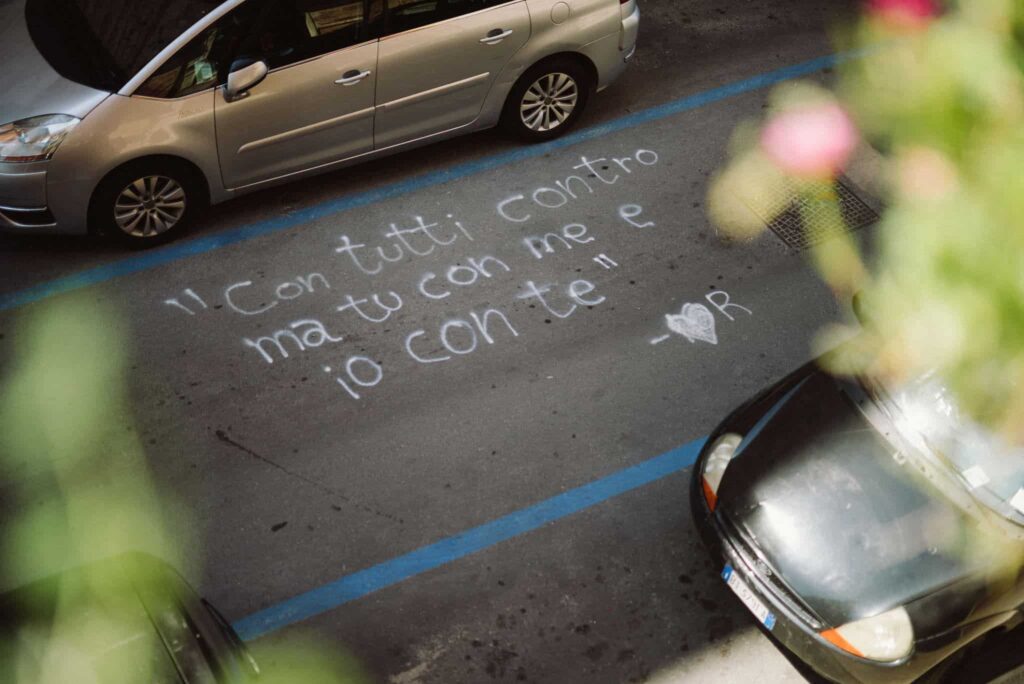 "Con tutti contro
ma tu con me e
io con te"
-♥R